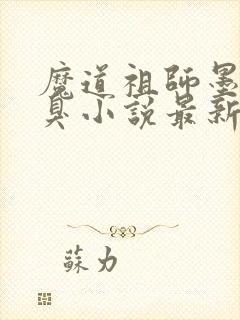 魔道祖師墨
臭小說最新
蘇力